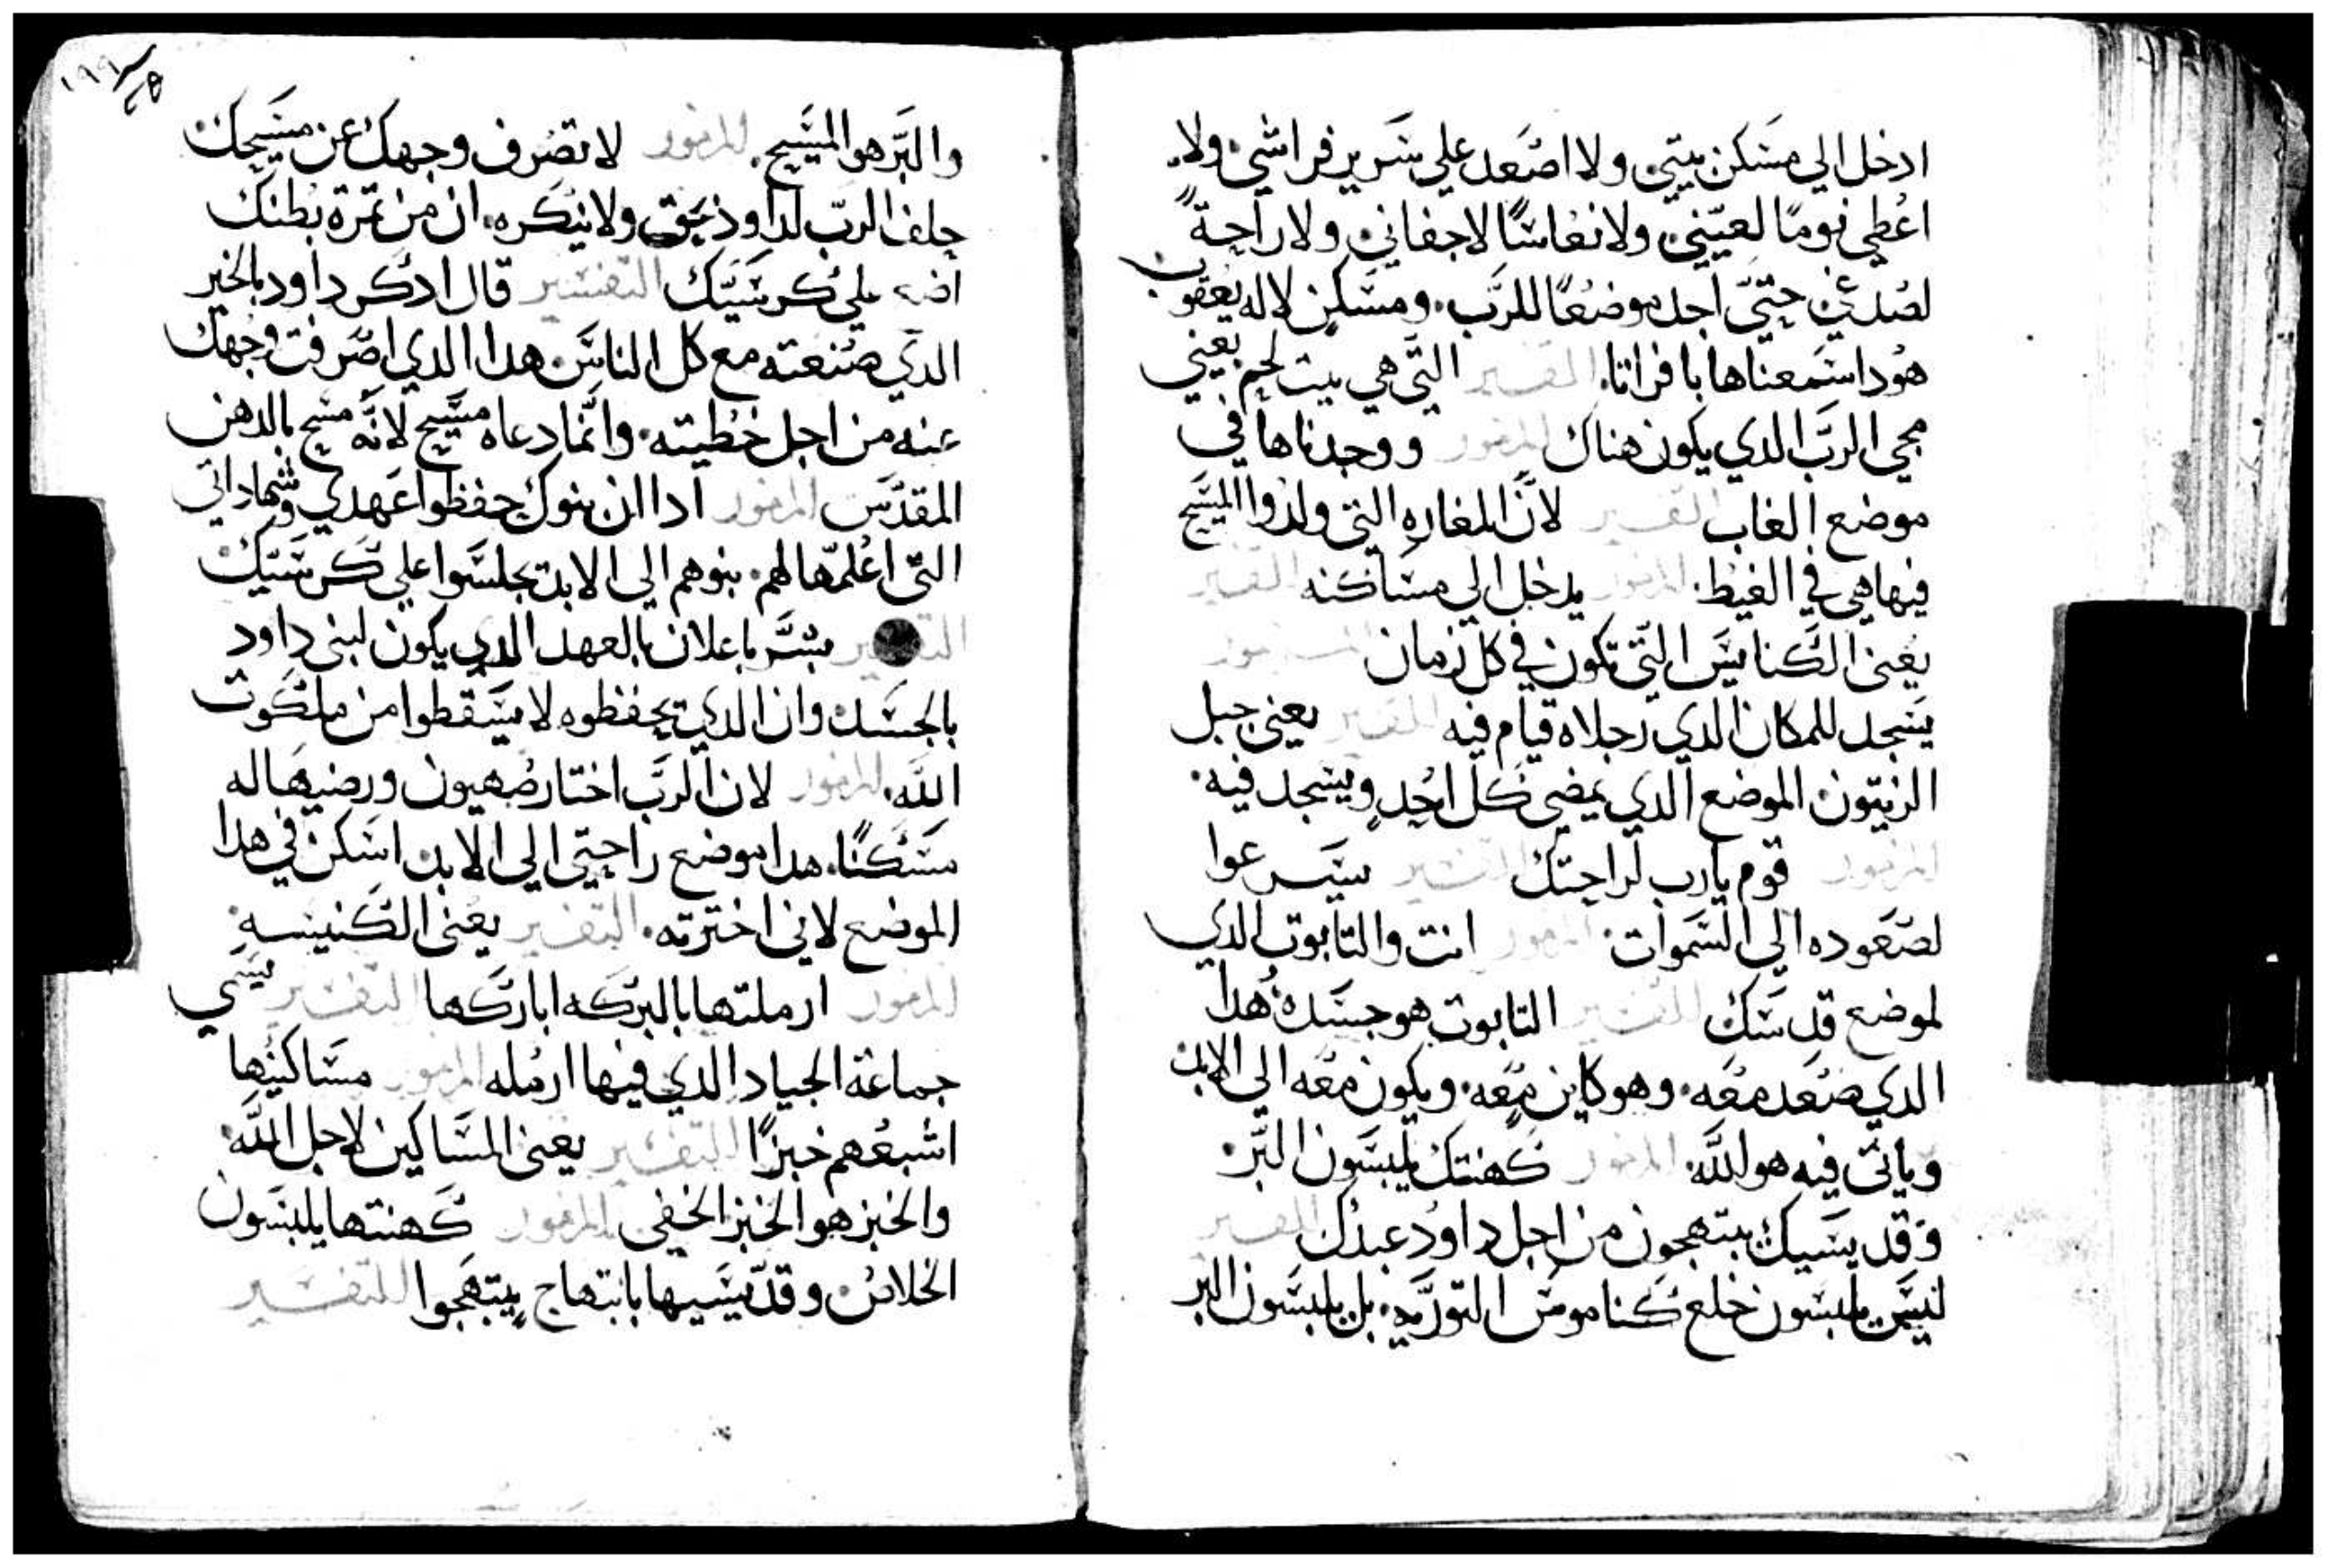 ادخل الي مسكن بيتي ولا اصعد علي سرير فراشي ولا
اعطي نوما لعيني ولا نعاسا لاجفاني ولا راحة
لصدغي حتي اجد موضعا للرب ومسكن لاله يعقوب
هودا سمعناها بافراتا التفسير التي هي بيت لحم يعني
مجي الرب الدي يكون هناك المزمور ووجدناها في
موضع الغاب التفسير لان المغاره التي ولدوا المسيح
فيها هي في الغيط المزمور يدخل الي مساكنه التفسير
يعني الكنايس التي تكون في كل زمان المزمور
يسجد للمكان الدي رجلاه قيام فيه التفسير يعني جبل
الزيتون الموضع الدي يمضي كل احد ويسجد فيه
المزمور قوم يارب لراحتك التفسير يسرعوا
لصعوده الي السموات المزمور انت والتابوت الدي
لموضع قدسك التفسير التابوت هو جسده هدا
الدي صعد معه وهو كاين معه ويكون معه الي الابد
وياتي فيه هو الله المزمور كهنتك يلبسون البر
وقديسيك يبتهجون من اجل داود عبدك التفسير
ليس يلبسون خلع كناموس التوريه بل يلبسون البر
١٩٩
والبر هو المسيح المزمور لا تصرف وجهك عن مسيحك
حلف الرب لداود بحق ولا ينكره ان من تمرة بطنك
اضع علي كرسيك التفسير قال ادكر داود بالخير
الدي صنعته مع كل الناس هدا الدي اصرفت وجهك
عنه من اجل خطيته وانما دعاه مسيح لانه مسح بالدهن
المقدس المزمور ادا ان بنوك حفظوا عهدي وشهاداتي
التي اعلمها لهم بنوهم الي الابد تجلسوا علي كرسيك
التفسير بشر باعلان بالعهد الدي يكون لبني داود
بالجسد وان الدي يحفظوه لا يسقطوا من ملكوت
الله المزمور لان الرب اختار صهيون ورضيها له
مسكنا هدا موضع راحتي الي الابد اسكن في هدا
الموضع لاني اخترته التفسير يعني الكنيسه
المزمور ارملتها بالبركه اباركها التفسير يسمي
جماعة الجياد الدي فيها ارمله المزمور مساكينها
اشبعهم خبزا التفسير يعني المساكين لاجل الله
والخبز هو الخبز الخفي المزمور كهنتها يلبسون
الخلاص وقديسيها بابتهاج يبتهجوا التفسير